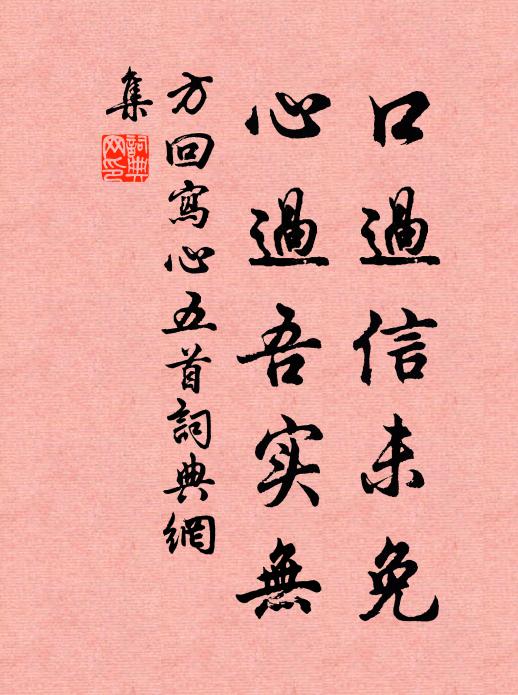 口過信未免
心過吾实無
方回寫心五首詞典網
集
詞典
网印